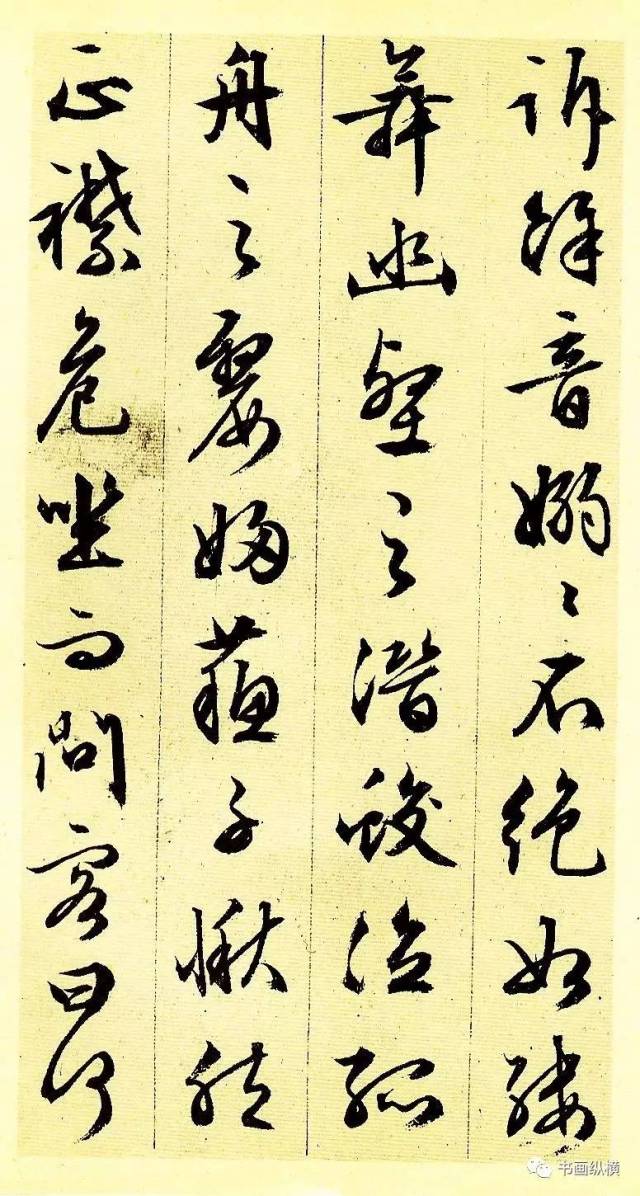 訴餘音嫋〻不絕如縷
舞幽壑之潛蛟泣孤
舟之嫠婦蘇子愀然
正襟危坐而問客曰何
书画纵横